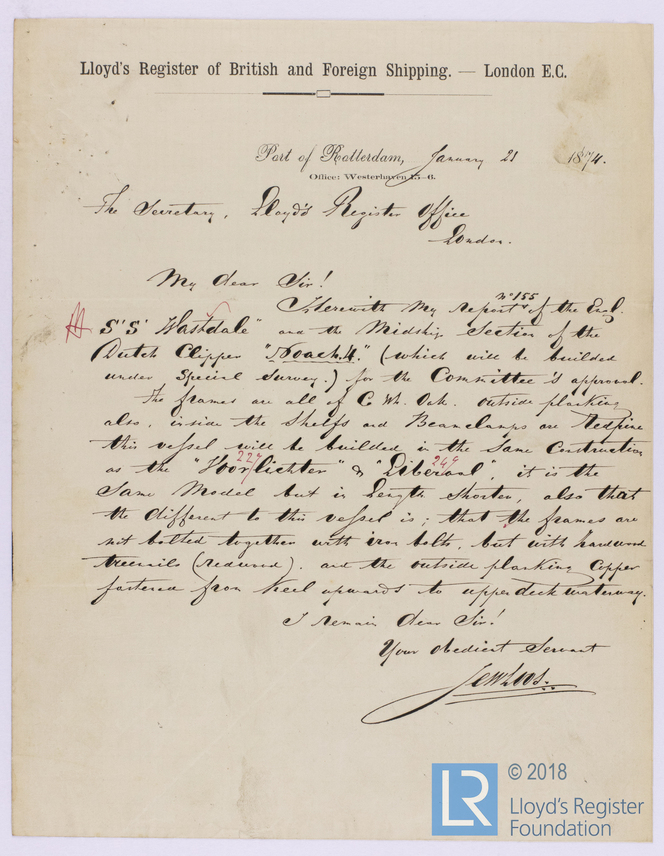 Lloyd's Register of British and Foreign Shipping. — London E.C.
Port of Rotterdam, January 21 1874.
Office: Westerhaven 15-6.
The Secretary, Lloyd's Register Office
London.
My dear Sir!
No 155
Herewith my report of the Engl.
S'S' Hastdale" and the Midship Section of the
Dutch Clipper "Noach.4." (which will be builded
under Special Survey.) for the Committee's approval.
The frames are all of C. Wh. Oak. outside planking
also, inside the Shelfs and Beamclamps are Redpine
this vessel will be builded in the Same Construction
227 249
as the "Voorlichter" & "Liberaal", it is the
Same Model but in Length Shorter, also that
the different to this vessel is; that the frames are
not bolted together with iron bolts, but with hardwood
treenails and the outside planking Copper
fastened from Keel upwards to upperdeck waterway.
I remain dear Sir!
Your obedient Servant
© 2018
LR
Lloyd's Register
Foundation